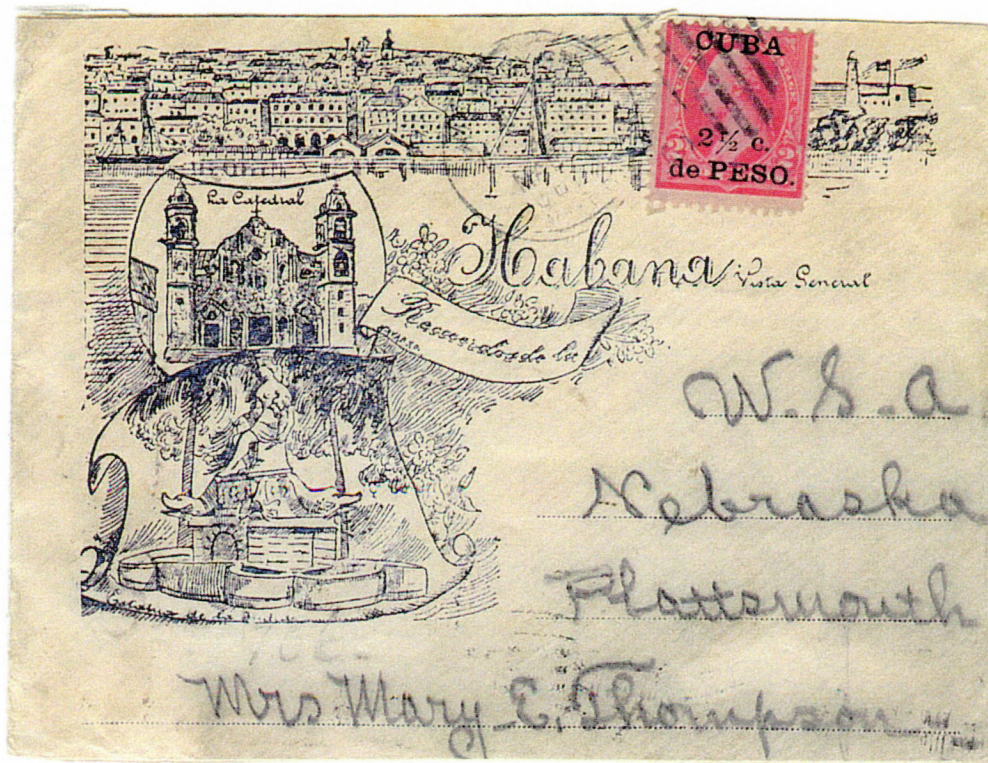 CUBA
2½ c.
de PESO.
La Catedral
Habana
Vista General
Recuerdo de la
W. S. A.
Nebraska
Plattsmouth
Mrs Mary E. Thompson